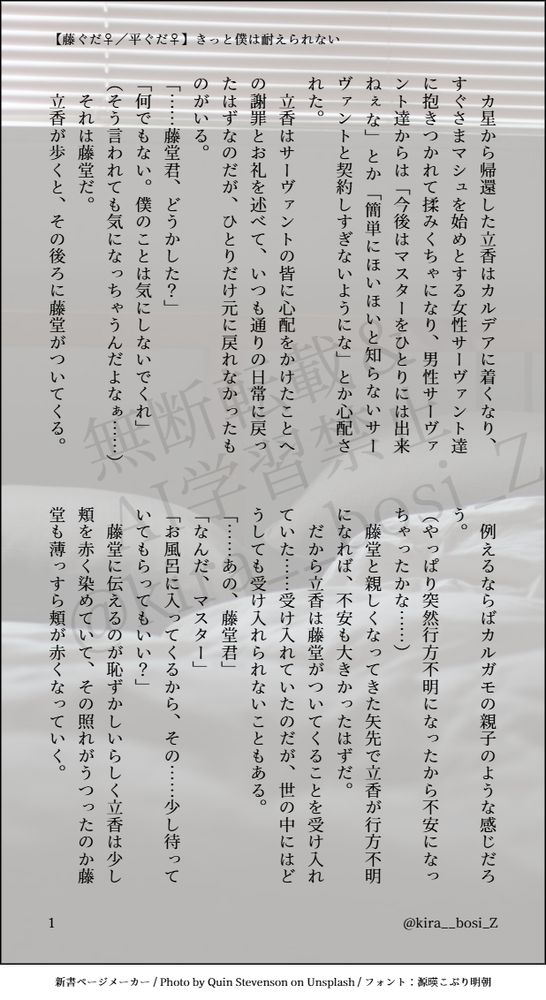 【藤ぐだ♀／平ぐだ♀】きっと僕は耐えられない
カ星から帰還した立香はカルデアに着くなり、
すぐさまマシュを始めとする女性サーヴァント達
に抱きつかれて揉みくちゃになり、男性サーヴァ
ント達からは「今後はマスターをひとりには出来
ねぇな」とか「簡単にほいほいと知らないサー
ヴァントと契約しすぎないようにな」とか心配さ
れた。
立香はサーヴァントの皆に心配をかけたことへ
の謝罪とお礼を述べて、いつも通りの日常に戻っ
たはずなのだが、ひとりだけ元に戻れなかったも
のがいる。
「……藤堂君、どうかした？」
「何でもない。僕のことは気にしないでくれ」
(そう言われても気になっちゃうんだよなぁ……)
それは藤堂だ。
立香が歩くと、その後ろに藤堂がついてくる。
例えるならばカルガモの親子のような感じだろ
う。
(やっぱり突然行方不明になったから不安になっ
ちゃったかな……)
藤堂と親しくなってきた矢先で立香が行方不明
になれば、不安も大きかったはずだ。
だから立香は藤堂がついてくることを受け入れ
ていた……受け入れていたのだが、世の中にはど
うしても受け入れられないこともある。
「……あの、藤堂君」
「なんだ、マスター」
「お風呂に入ってくるから、その……少し待って
いてもらってもいい？」
藤堂に伝えるのが恥ずかしいらしく立香は少し
頬を赤く染めていて、その照れがうつったのか藤
堂も薄っすら頬が赤くなっていく。
無断転載＆
AI学習禁止
@kira__bosi_Z
1
@kira__bosi_Z
新書ページメーカー / Photo by Quin Stevenson on Unsplash / フォント：源暎こぶり明朝